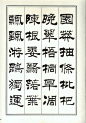 園莽抽條枇杷
晚翠梧桐早凋
陳根委翳落葉
飄颻游鵾獨運